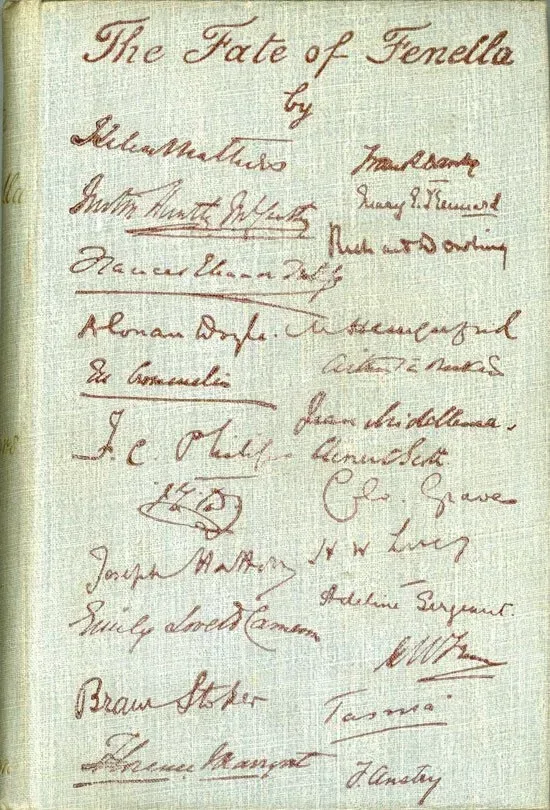 The Fate of Fenella
by
Helen Mathers
Justin Huntly McCarthy
Frances Eleanor Trollope
A Conan Doyle.
May Crommelin
F. C. Philips
Joseph Hatton
Emily Lovett Cameron
Bram Stoker
Florence Marryat
Frank Danby
Mary E. Kennard
Richard Dowling
M Hungerford
Arthur à Beckett
Jean Middlemass.
Clement Scott.
Clo. Graves
H W Lucy
Adeline Sergeant.
Tasma
F. Anstey